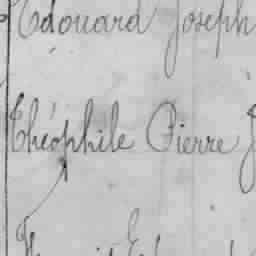 Edouard Joseph
Théophile Pierre J